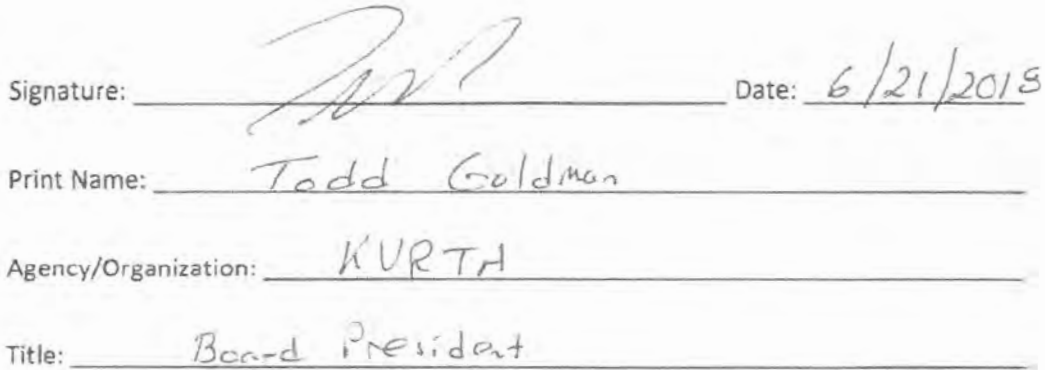 Signature: Date: 6/21/2018
Print Name: Todd Goldman
Agency/Organization: KVRTA
Title: Board President